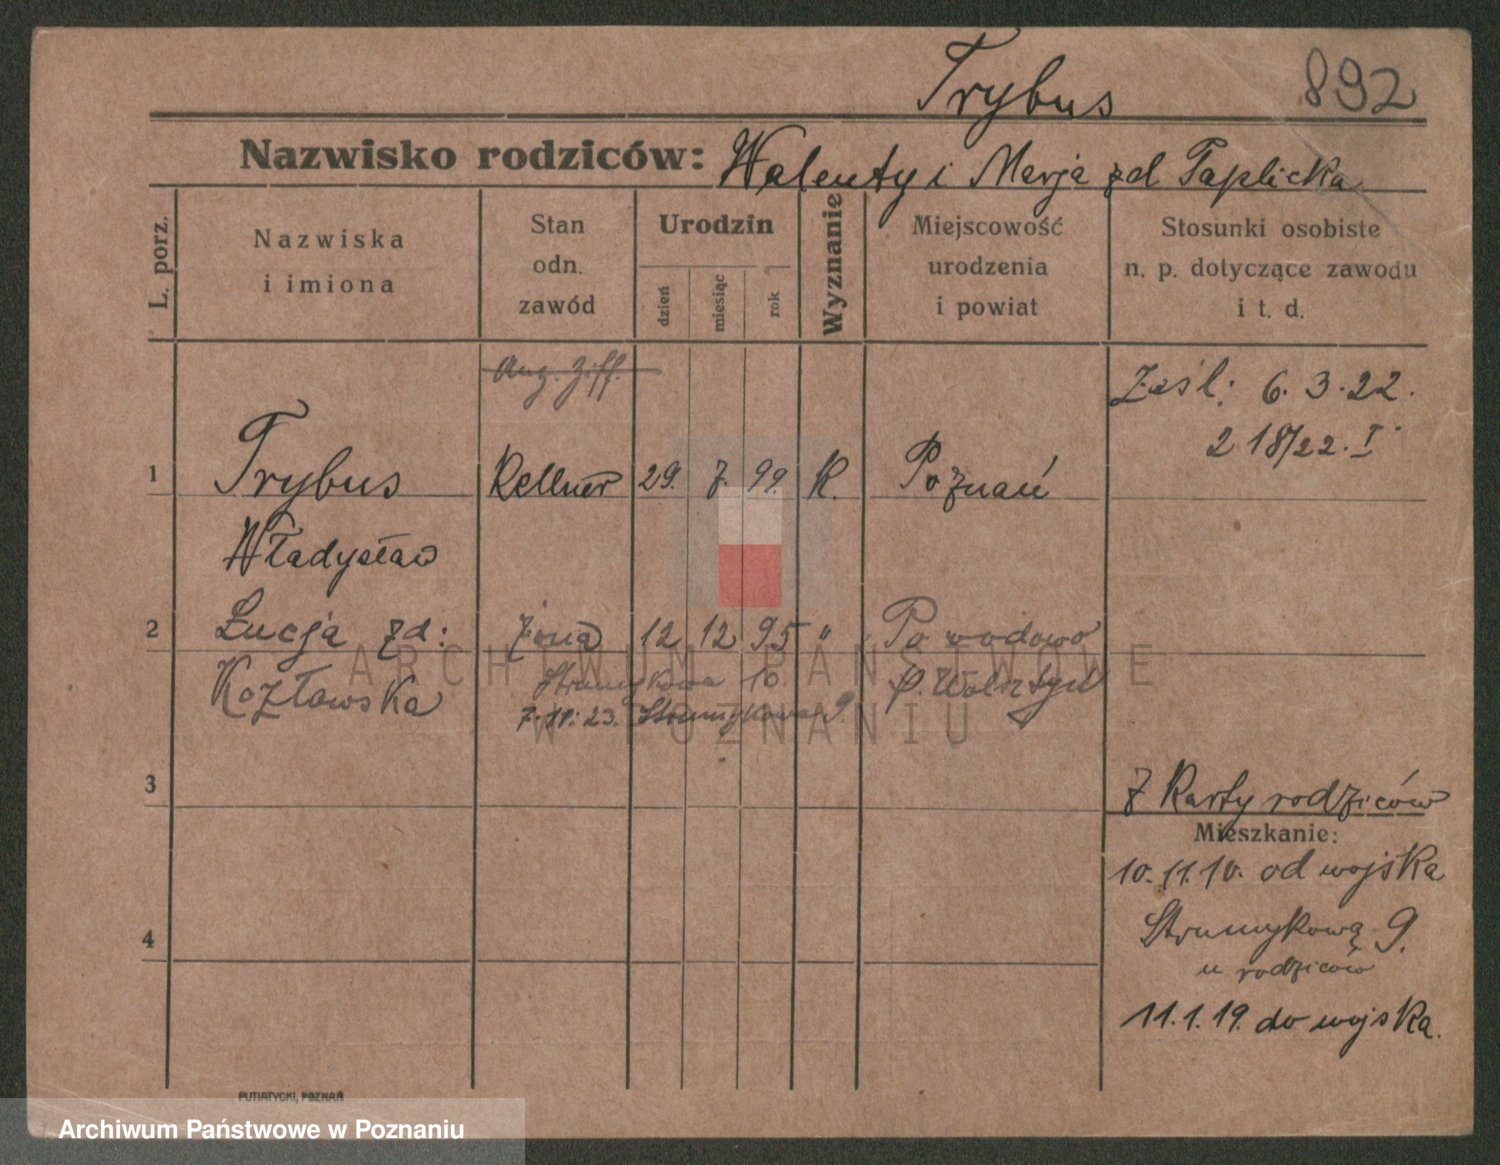 Trybus 892
Nazwisko rodziców: Walenty i Marja zd Taplicka
L. porz.
Nazwiska
i imiona
Stan
odn.
zawód
Urodzin
dzień
miesiąc
rok
Wyznanie
Miejscowość
urodzenia
i powiat
Stosunki osobiste
n. p. dotyczące zawodu
i t. d.
Aug. Ziff.
Zaśl: 6. 3. 22.
2 18/22. I
1 Trybus Kellner 29. 7. 99. K. Poznań
Władysław
2 Łucja zd: żona 12 12 95 " Powodowo
Kozłowska Strumykowa 10 p. Wolsztyn
7. 11. 23. Strumykowa 9.
3
Z Karty rodziców
Mieszkanie:
10. 11. 18. od wojska
4
Strumykowa 9.
u rodziców
11. 1. 19. do wojska.
PUTIATYCKI, POZNAŃ
ARCHIWUM PAŃSTWOWE
W POZNANIU
Archiwum Państwowe w Poznaniu